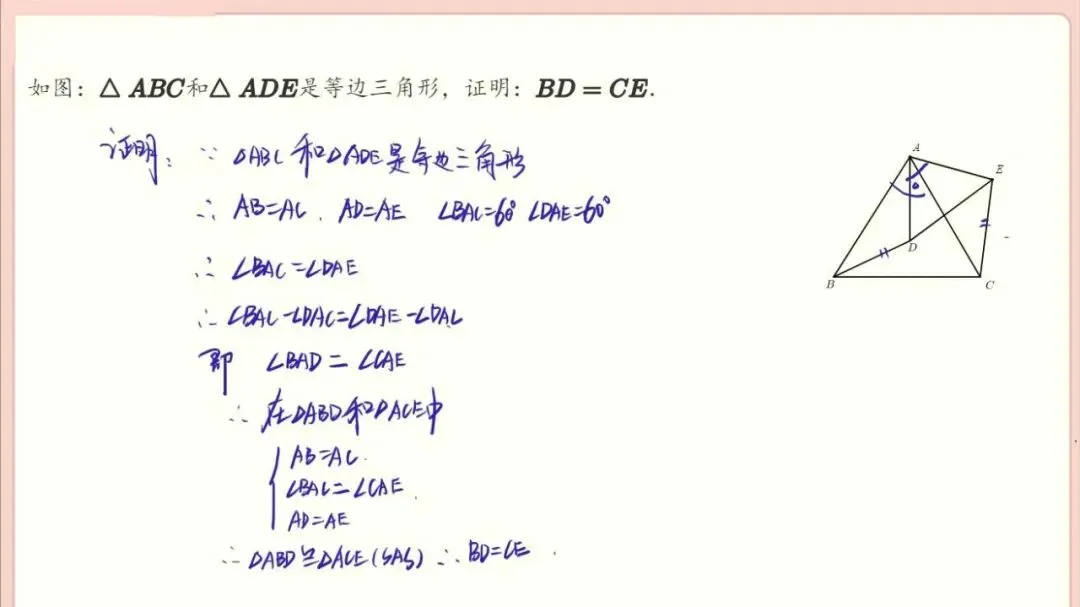 如图：△ ABC和△ ADE是等边三角形，证明：BD = CE.
证明： ∵ △ABC 和△ADE是等边三角形
∴ AB=AC . AD=AE ∠BAC=60° ∠DAE=60°
∴ ∠BAC=∠DAE
∴ ∠BAC-∠DAC=∠DAE-∠DAC
即 ∠BAD = ∠CAE
∴ 在△ABD和△ACE中
AB=AC.
∠BAC=∠CAE.
AD=AE
∴ △ABD≌△ACE(SAS) ∴ BD=CE .
A
E
D
B
C